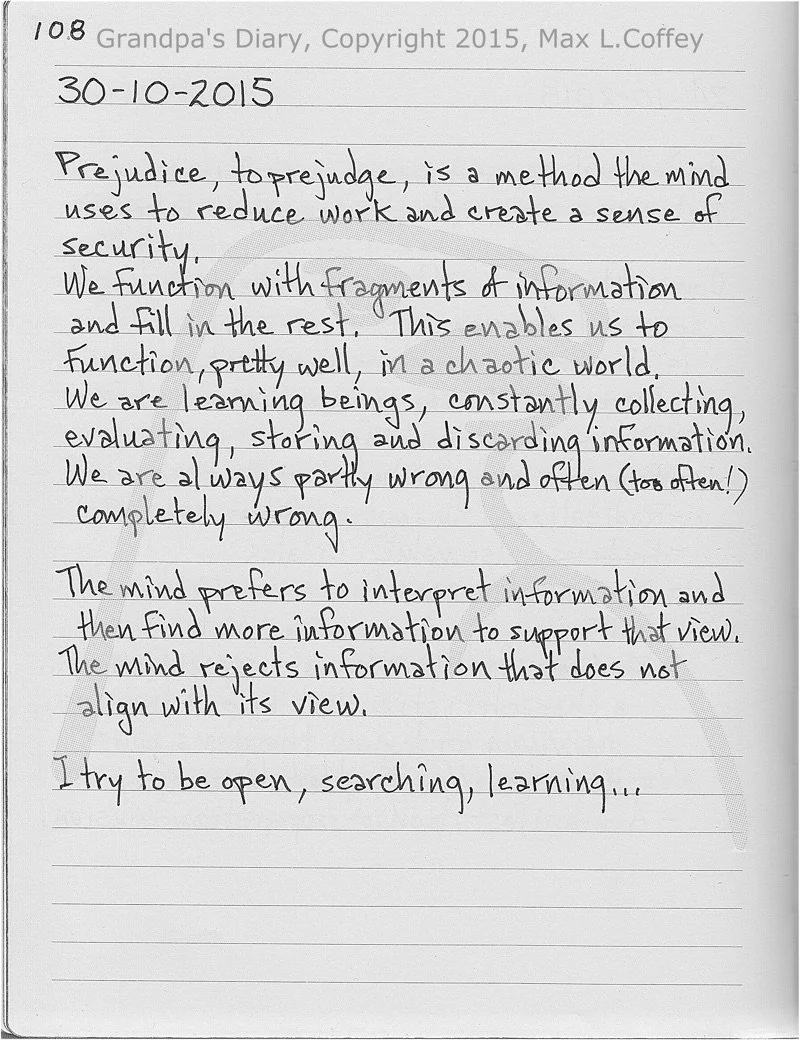 108 Grandpa's Diary, Copyright 2015, Max L.Coffey
30-10-2015
Prejudice, to prejudge, is a method the mind
uses to reduce work and create a sense of
security.
We function with fragments of information
and fill in the rest. This enables us to
function, pretty well, in a chaotic world.
We are learning beings, constantly collecting,
evaluating, storing and discarding information.
We are always partly wrong and often (too often!)
completely wrong.
The mind prefers to interpret information and
then find more information to support that view.
The mind rejects information that does not
align with its view.
I try to be open, searching, learning...